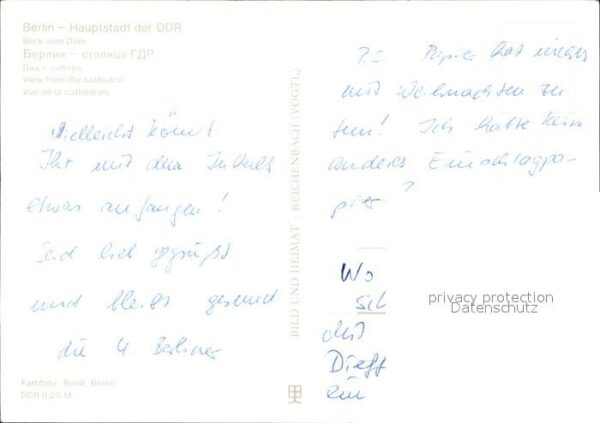 Berlin – Hauptstadt der DDR
Blick vom Dom
Берлин – столица ГДР
Вид с собора
View from the cathedral
Vue de la cathédrale
Vielleicht könnt
Ihr mit dem Inhalt
etwas anfangen!
Seid lieb gegrüßt
und bleibt gesund
die 4 Berliner
Farbfoto: Boldt, Berlin
DDR 0,20 M
BILD UND HEIMAT · REICHENBACH (VOGTL)
Papier hat nichts
mit Weihnachten zu
tun! Ich hatte kein
anderes Einschlagpa-
pier
Wo
sich
des
Dieff
ein
privacy protection
Datenschutz